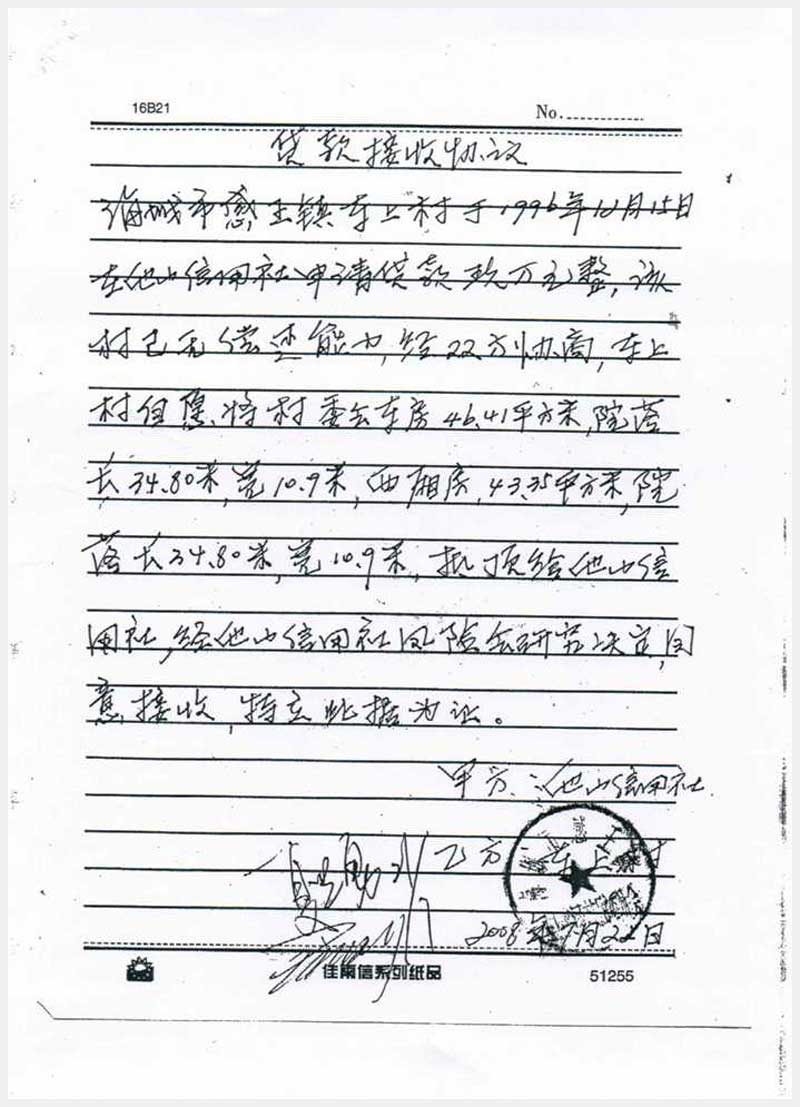 16B21
No.
贷款接收协议
海城市感王镇车上村于1996年12月15日
在他山信用社申请贷款玖万元整,该
村已无偿还能力,经双方协商,车上
村自愿将村委会东房46.41平方米,院落
长34.80米,宽10.9米,西厢房,43.35平方米,院
落长34.80米,宽10.9米,抵顶给他山信
用社,经他山信用社风险会研究决定,同
意接收,特立此据为证。
甲方:他山信用社
乙方:车上村
2008年7月22日
佳南信系列纸品
51255